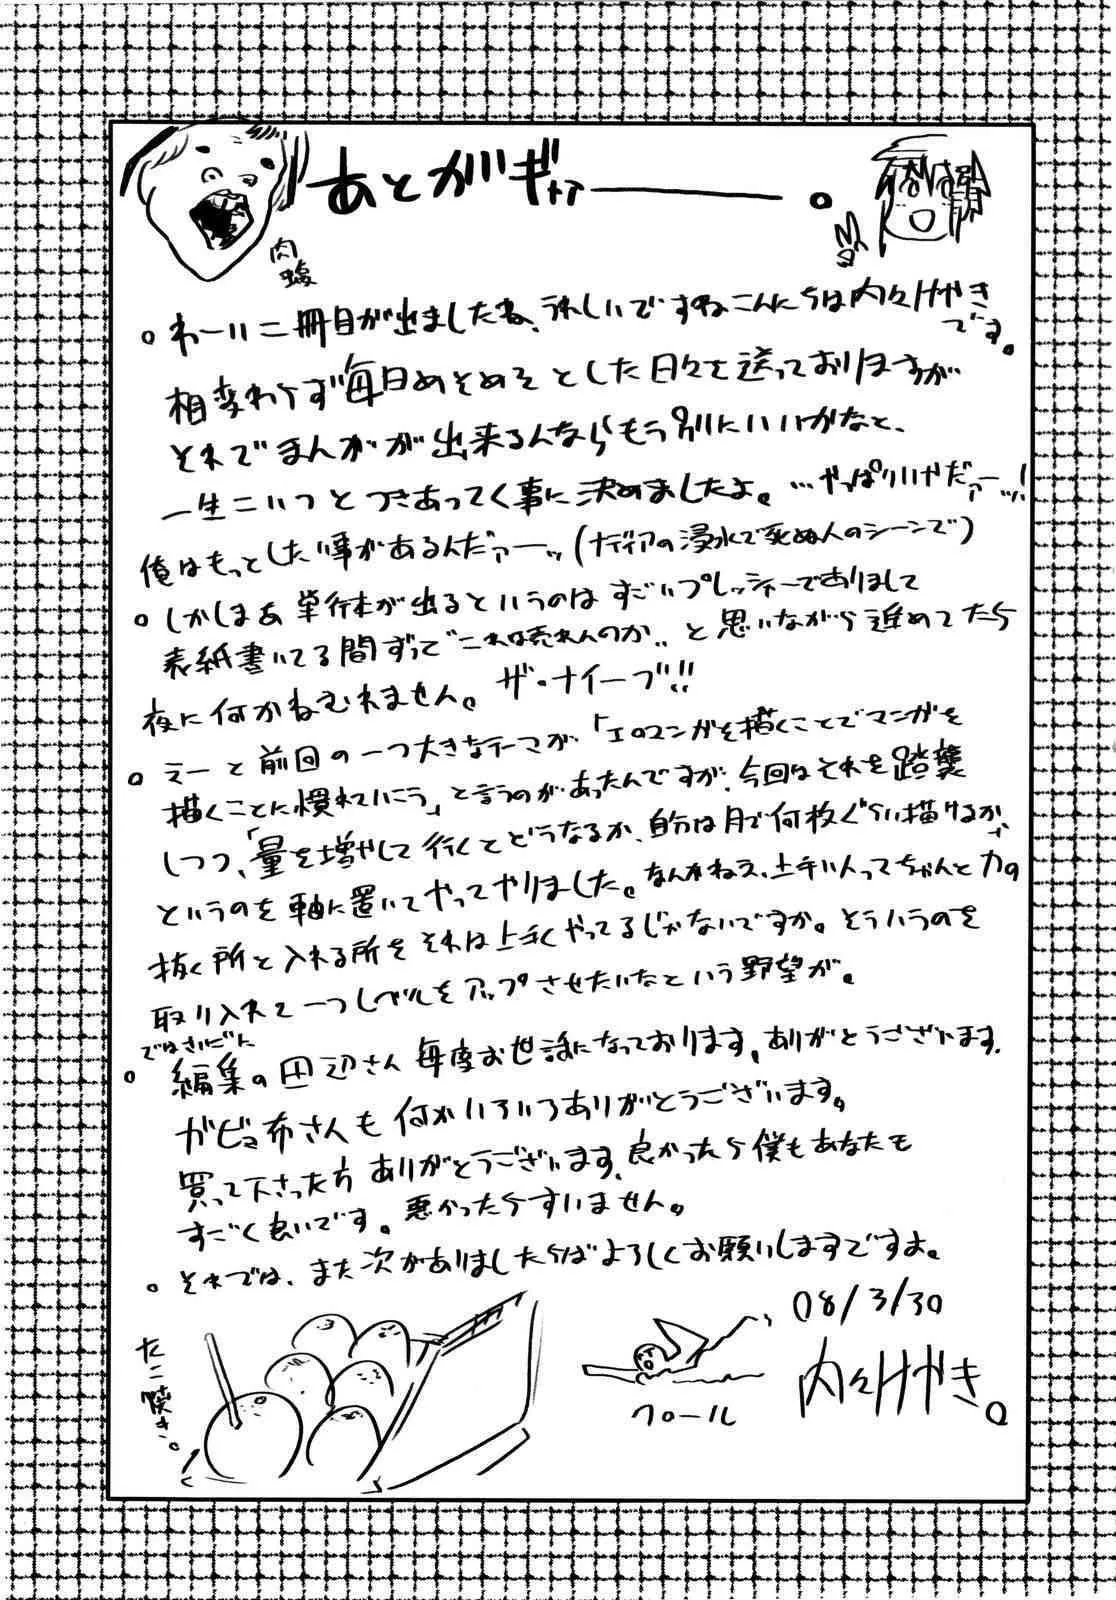 あとがギャァーーー。
肉
。わーい二冊目が出ましたね、うれしいですねこんにちは内々けやき
です。
相変わらず毎日めそめそとした日々を送っておりますが
それでまんがが出来るんならもう別にいいかなと、
一生こいつとつきあってく事に決めましたよ。…やっぱりいやだァーッ!
俺はもっとしたい事があるんだァーッ(ナディアの浸水で死ぬ人のシーンで)
。しかしまあ単行本が出るというのはすごいプレッシャーでありまして
表紙書いてる間ずっで"これは売れんのか"と思いながら進めてたら
夜に何かねむれません。ザ・ナイーブ!!
。えーと前回の一つ大きなテーマが「エロマンガを描くことでマンガを
描くことに慣れていこう」と言うのがあったんですが、今回はそれを踏襲
しつつ、「量を増やして行くとどうなるか、自分は月で何枚ぐらい描けるか」
というのを軸に置いてやってやりました。なんかねえ、上手い人ってちゃんと力の
抜く所と入れる所をそれは上手くやってるじゃないですか。そういうのを
取り入れて一つレベルをアップさせたいなという野望が。
ではさいごに
。編集の田辺さん毎度お世話になっております、ありがとうございます。
ガビョ布さんも何かいろいろありがとうございます。
買って下さった方ありがとうございます、良かったら僕もあなたも
すごく良いです。悪かったらすいません。
。それでは、また次がありましたらばよろしくお願いしますですよ。
たこ焼き。
クロール
08/3/30
内々けやき。